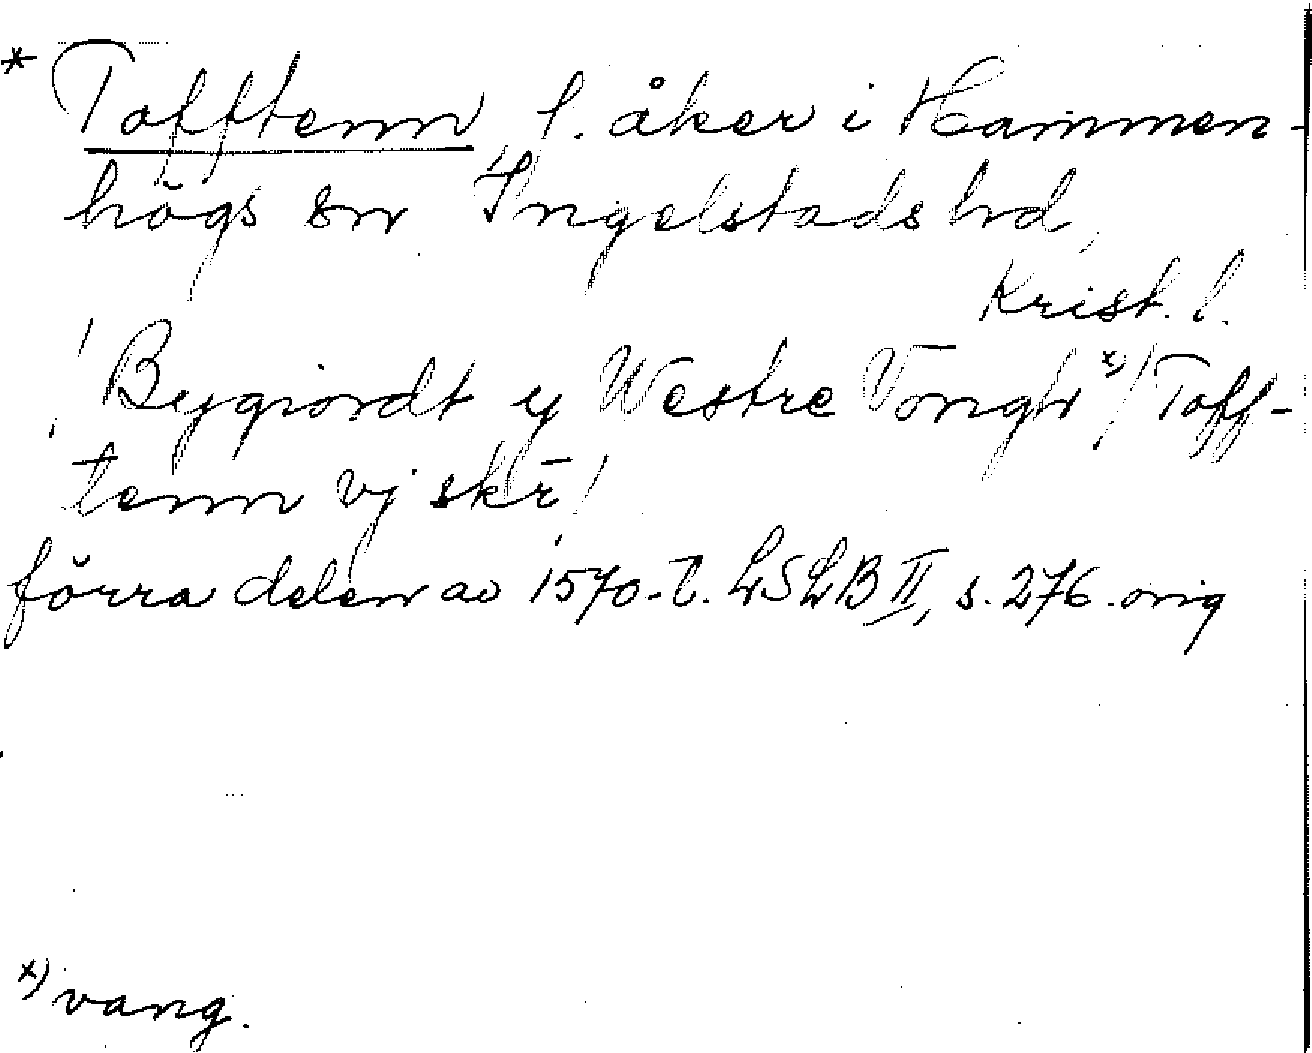 * Tofftenn f. åker i Hammen-
högs sn Ingelstads hd,
Krist. l.
/ Bygiordt ij Westre Vongh x) / Toff-
tenn vj skr̄ /
förra delen av 1570-t. LSLB II, s. 276. orig
x) vang.